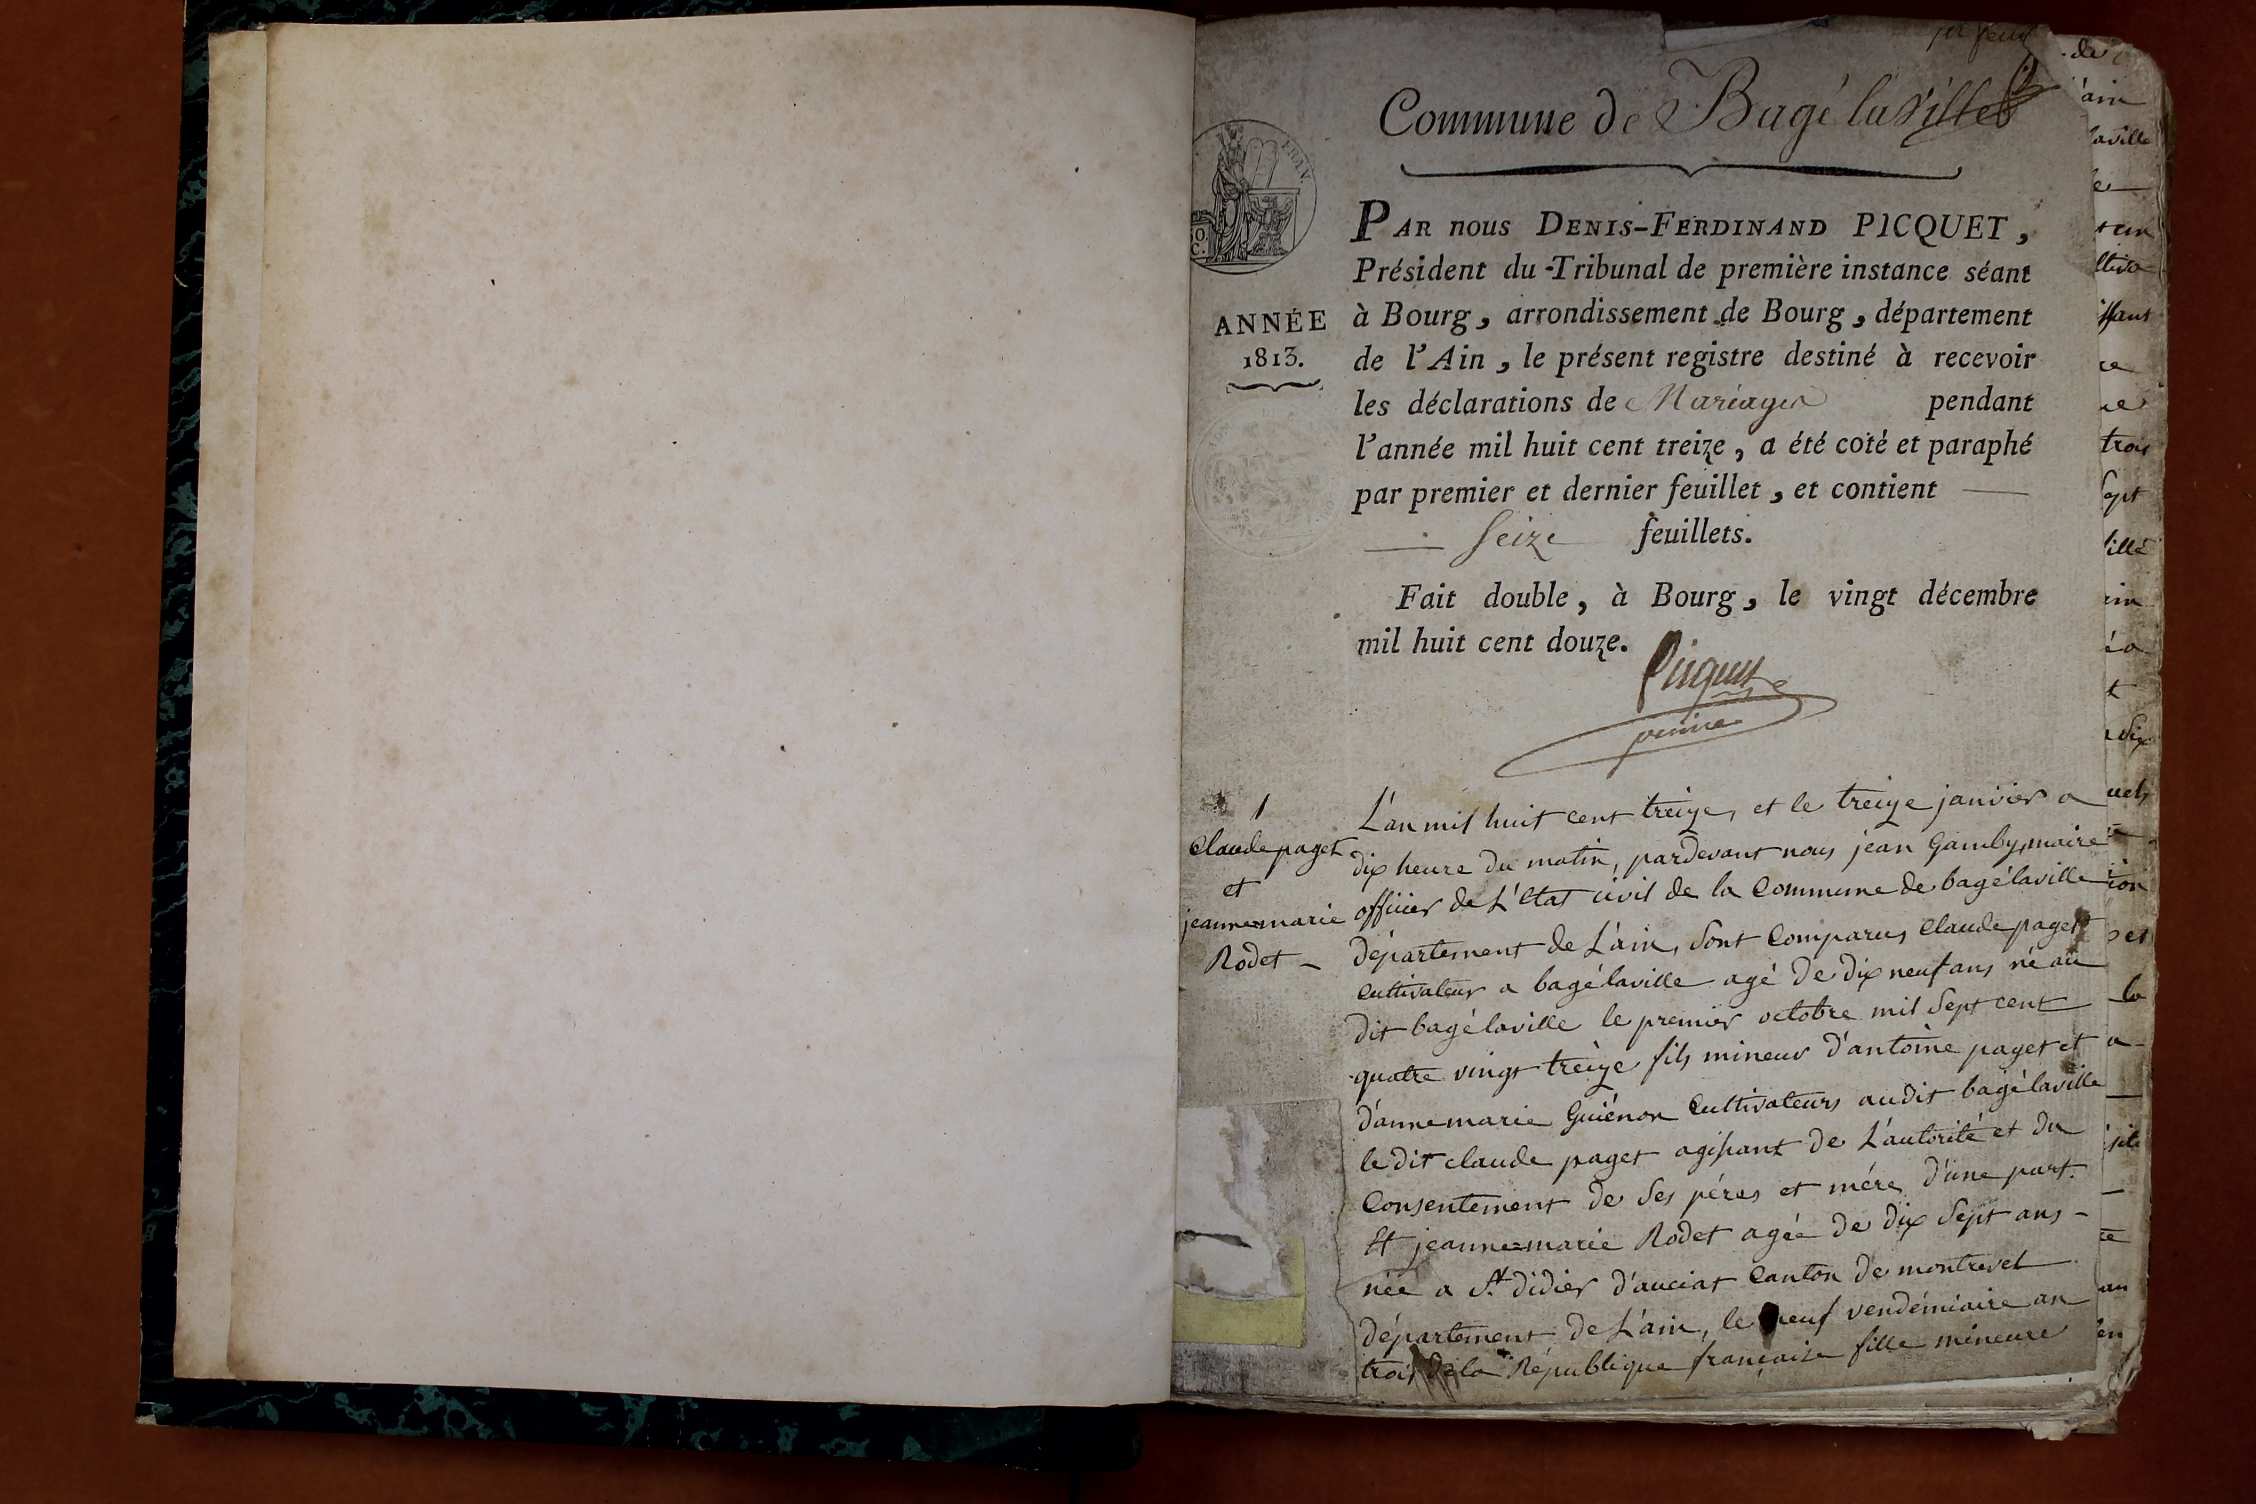 1er feuil
Commune de Bagé la Ville
ANNÉE
1813.
PAR nous DENIS-FERDINAND PICQUET,
Président du Tribunal de première instance séant
à Bourg, arrondissement de Bourg, département
de l'Ain, le présent registre destiné à recevoir
les déclarations de Mariages pendant
l'année mil huit cent treize, a été coté et paraphé
par premier et dernier feuillet, et contient —
— Seize feuillets.
Fait double, à Bourg, le vingt décembre
mil huit cent douze.
Picquet
1
Claude paget
et
jeanne=marie
Rodet —
L'an mil huit cent treize, et le treize janvier a
dix heure du matin, pardevant nous jean Gamby, maire
officier de L'Etat civil de la Commune de bagélaville
département de L'ain, Sont Comparus Claude paget
Cultivateur a bagélaville agé de dix neuf ans né au
dit bagélaville le premier octobre mil Sept cent
quatre vingt treize fils mineur d'antoine paget et
d'anne marie Guiénon Cultivateurs audit bagélaville
le dit claude paget agissant de L'autorité et du
Consentement de Ses péres et mére d'une part.
Et jeanne=marie Rodet agée de dix Sept ans —
née a St. didier d'auciat Canton de montrevel
département de L'ain, le neuf vendémiaire an
trois de la République française fille mineure